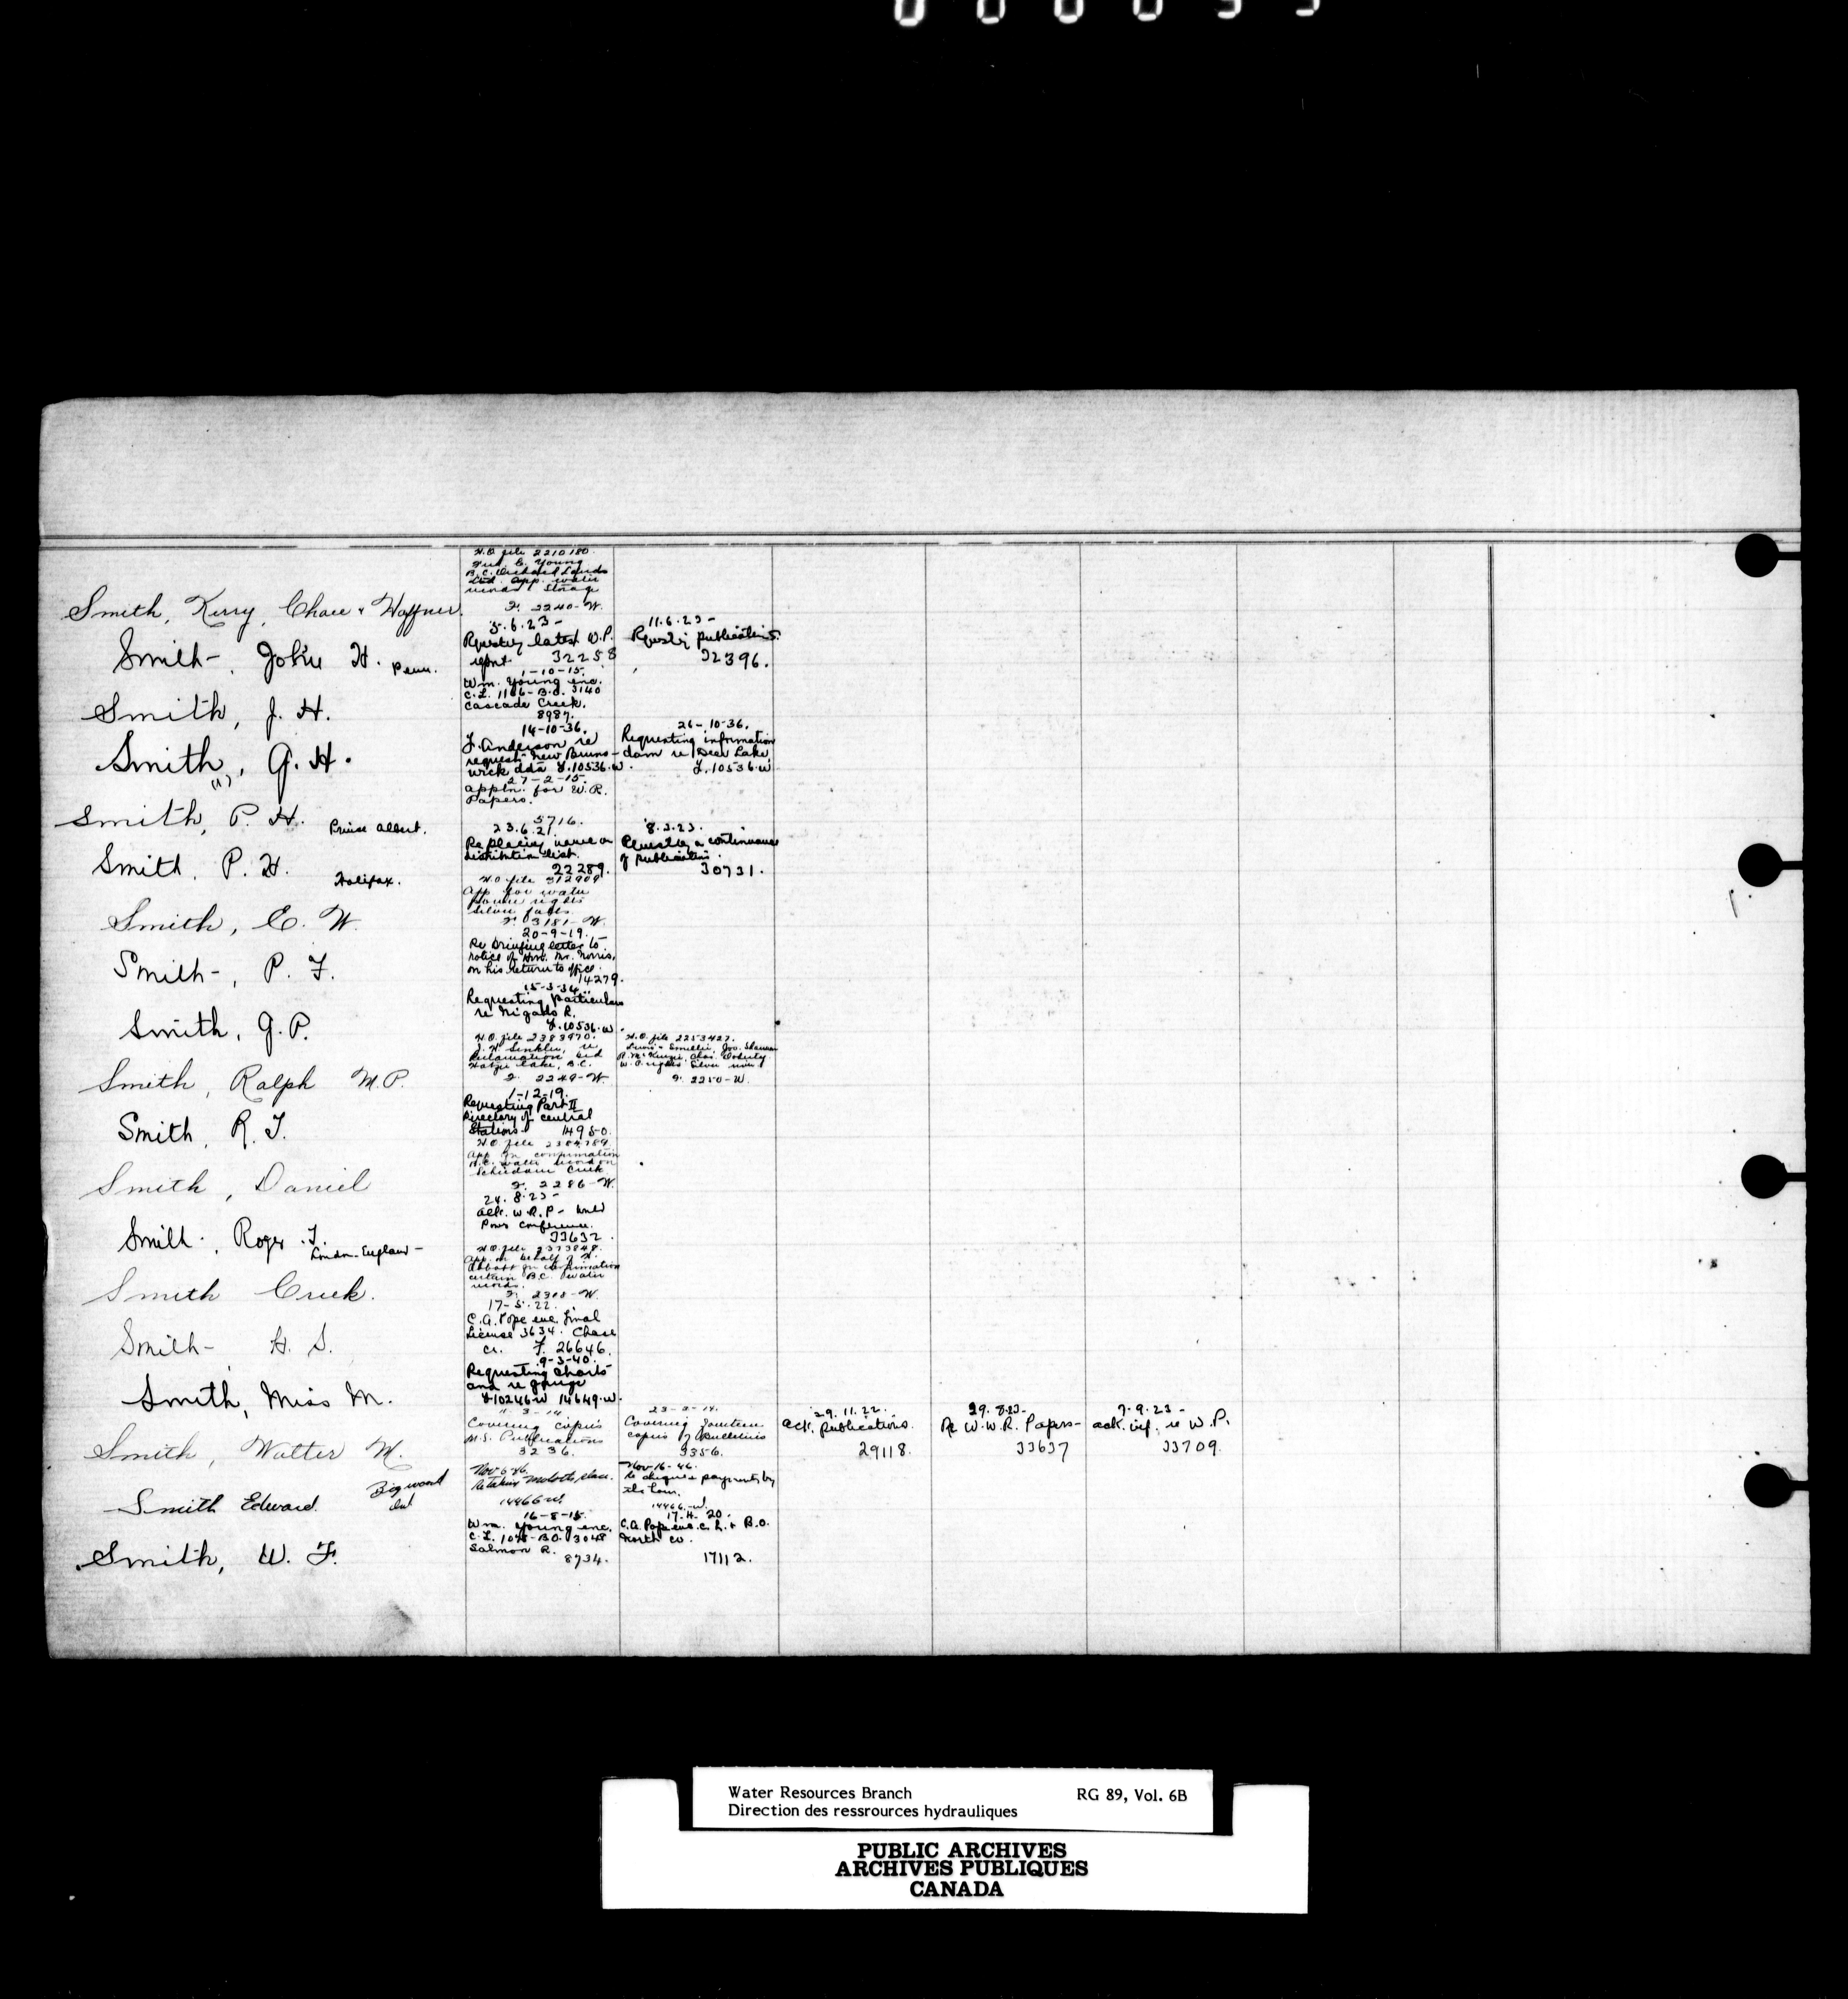 H.O. file 2210180.
B.C. Orchard Lands
Ltd. App. water
Smith, Kerry, Chace & Waffner.
F. 2240-W.
5.6.23-
Requesting latest W.P.
report 32258
11.6.23-
Requestg publications.
32396.
Smith, John H. Penn.
1-10-15.
Wm. Young enc.
C.L. 1106-B.O. 3140
Cascade Creek.
8987.
Smith, J. H.
14-10-36.
J. Anderson re
request New Bruns-
wick dda F.10536.w.
26-10-36.
Requesting information
dam re Deer Lake
F.10536.w
Smith, G. H.
(1)
27-2-15.
appln. for W.R.
Papers.
5716.
Smith, P. H. Prince Albert.
23.6.21.
Re placing name on
distribution list.
22289.
8.3.23.
Requestg a continuance
of publications.
30731.
Smith, P. H. Halifax.
H.O. file 372909
App. for water
power rights
Silver falls.
F. 3181-W.
Smith, C. W.
20-9-19.
Re bringing letter to
notice of Hon. Mr. Norris,
on his return to office.
14279.
Smith, P. F.
15-3-34.
Requesting particulars
re Nigado R.
F.10536.w.
Smith, G. P.
H.O. file 2383970.
J. H. Sinkler, re
Reclamation bed
Hatzic Lake, B.C.
F. 2249-W.
H.O. file 2253427.
F. 2250-W.
Smith, Ralph M.P.
1-12-19.
Requesting Part II
Directory of Central
Stations. 14950.
Smith, R. J.
H.O. file 2384789
App. for confirmation
B.C. water record on
Schiedam Creek
F. 2286-W.
Smith, Daniel
24.8.23-
ack. W.R.P- World
Power Conference.
33632.
Smith, Roger T.
London-England-
H.O. file 2373848.
App. on behalf of H.
Abbott for confirmation
certain B.C. water
records.
F. 2308-W.
Smith Creek.
17-5.22.
C.A. Pope enc. final
License 3634. Chase
Cr. F. 26646.
Smith, H. S.
9-3-40.
Requesting Charts
and re gauge
F10246w 14649.w.
Smith, Miss M.
11-3-14
Covering copies
M.S. Publications
3236.
23-3-14.
Covering fourteen
copies of Bulletins
3356.
29.11.22.
ack. publications.
29118.
29.8.23-
Re W.W.R. Papers-
33637
7.9.23-
ack. inf. re W.P.
33709.
Smith, Walter M.
Nov 6-46.
14466-w.
Nov-16-46.
Re cheque & payments by
14466.-W.
Smith Edward. Bigwood
Ont
16-8-15.
Wm. Young enc.
C.L. 1078-B.O. 3048
Salmon R.
8734.
17.4.20.
C.A. Pope enc. C.L. & B.O.
North Co.
17112.
Smith, W. F.
Water Resources Branch RG 89, Vol. 6B
Direction des ressrources hydrauliques
PUBLIC ARCHIVES
ARCHIVES PUBLIQUES
CANADA